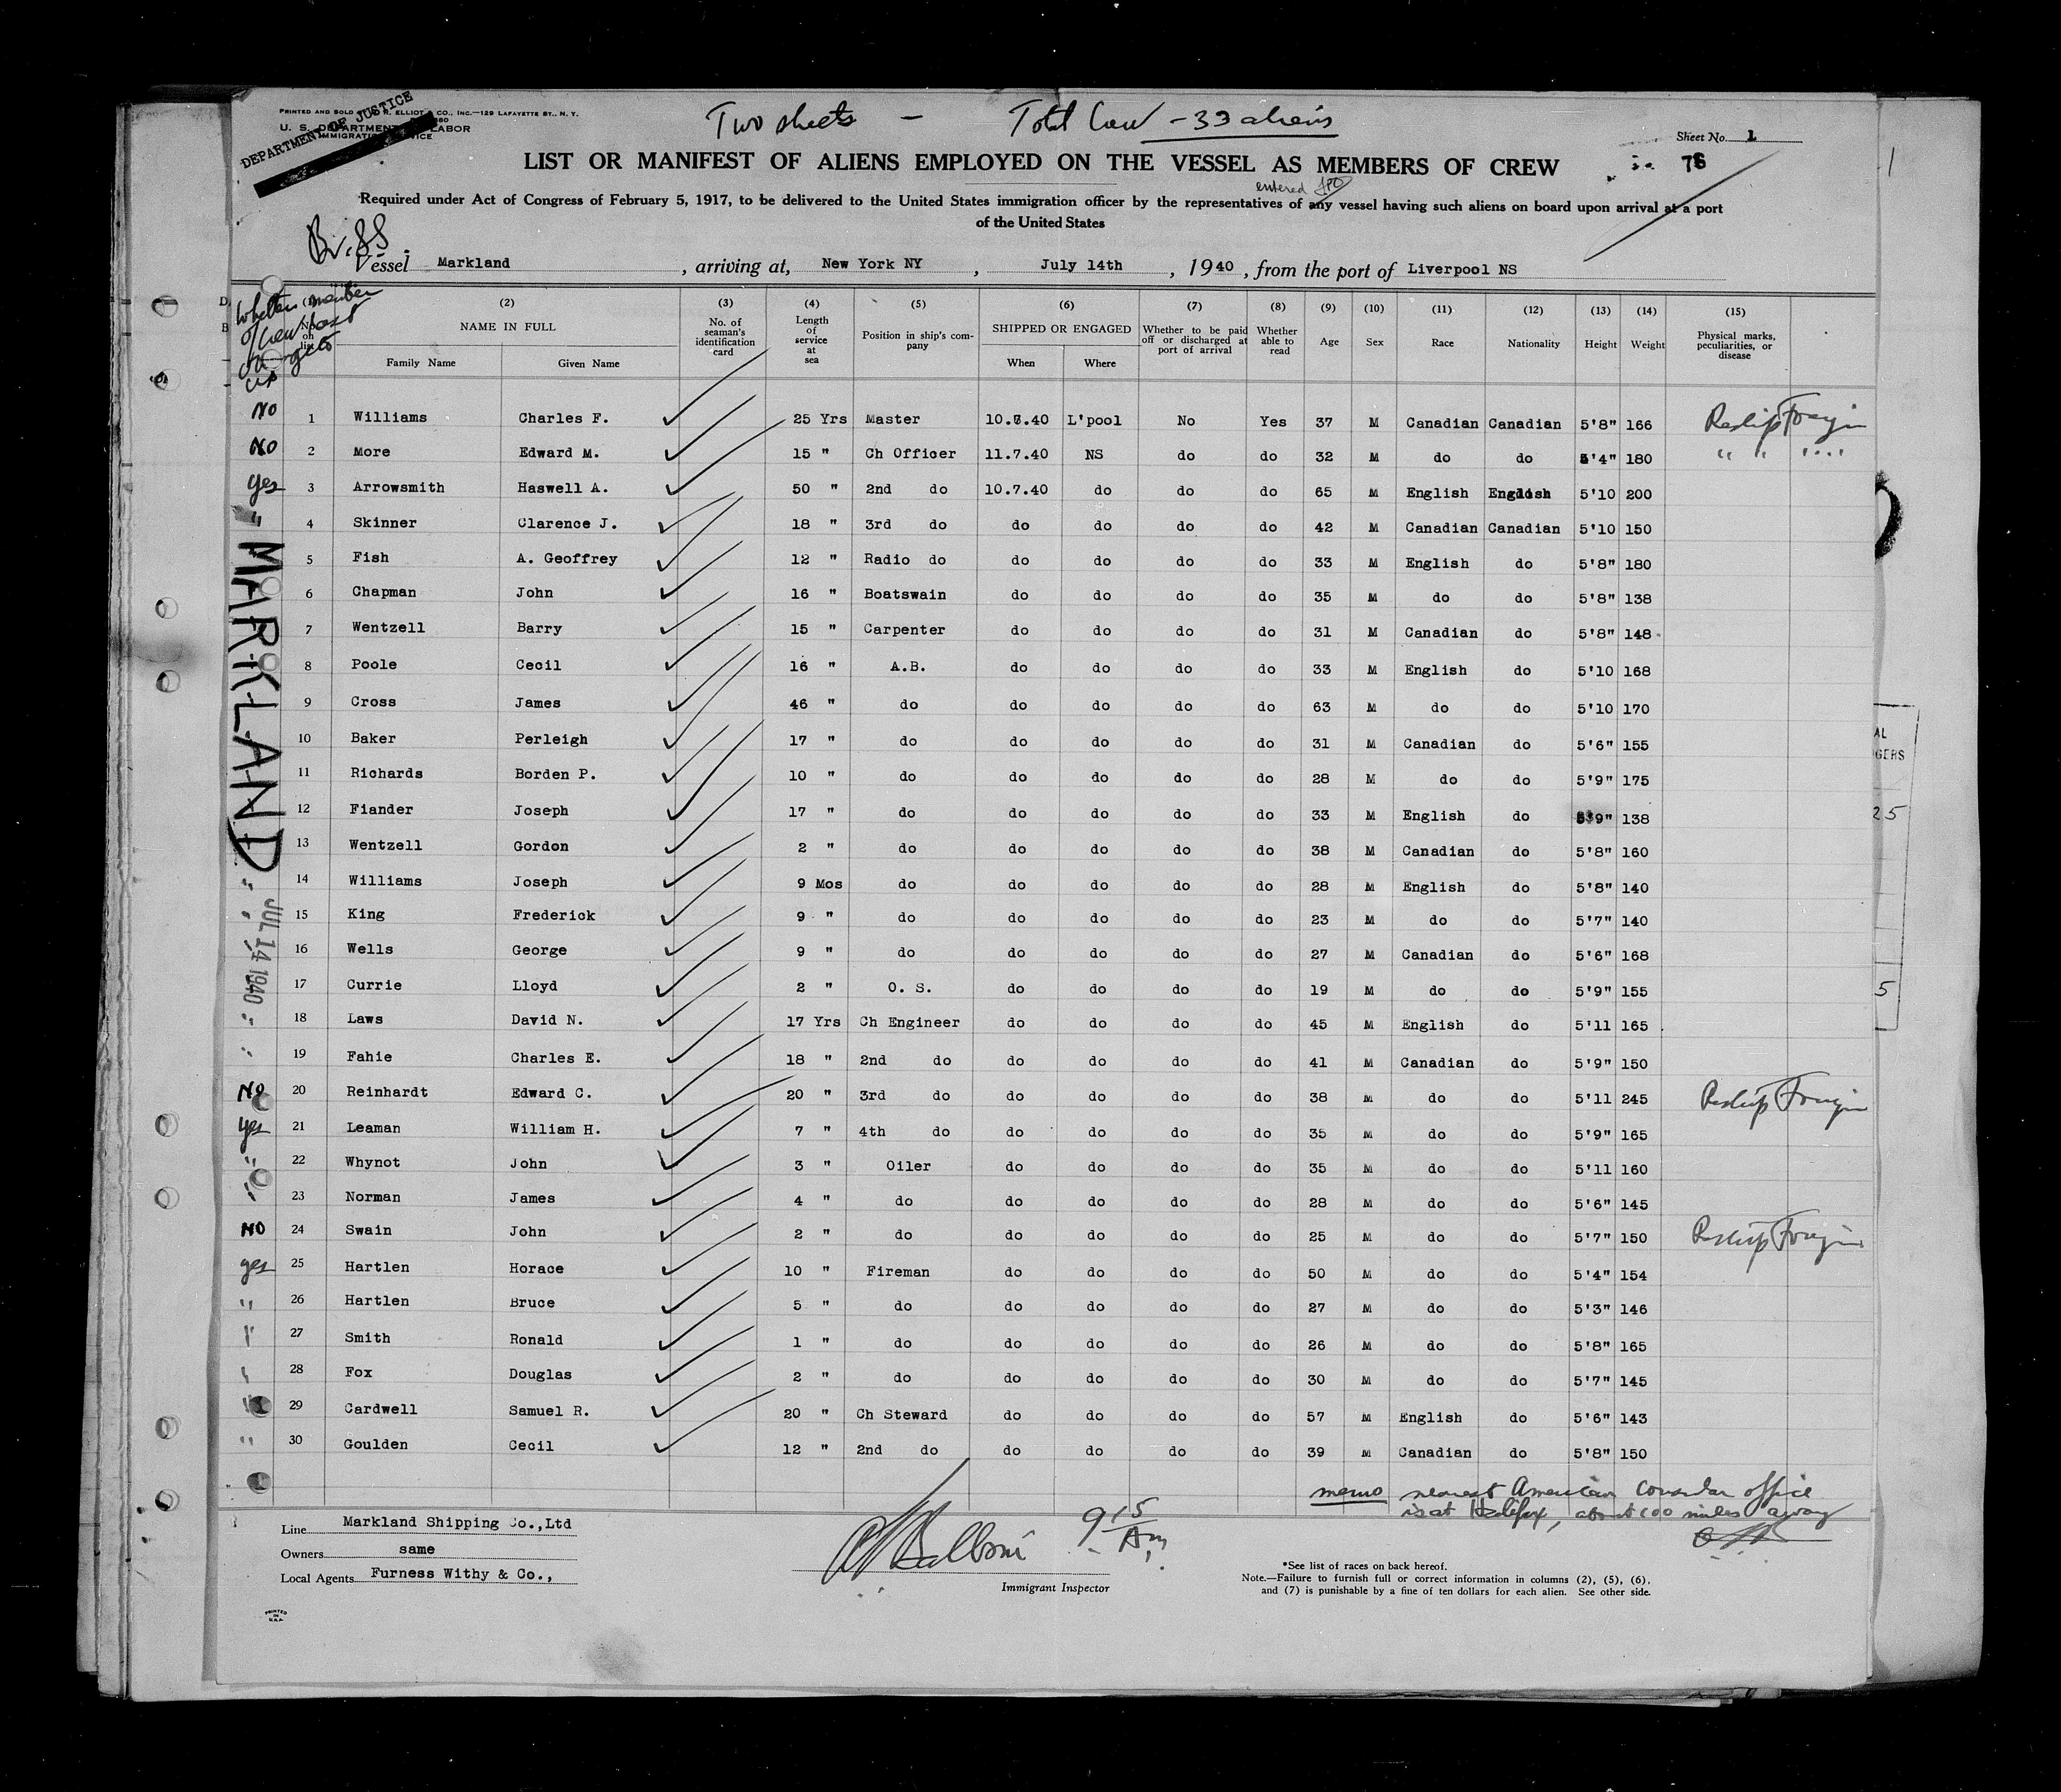 PRINTED AND SOLD BY R. ELLIOT CO., INC.—129 LAFAYETTE ST., N. Y.
U. S. DEPARTMENT LABOR
DEPARTMENT OF JUSTICE
Two sheets - Total Crew - 33 aliens
Sheet No. 1
76
LIST OR MANIFEST OF ALIENS EMPLOYED ON THE VESSEL AS MEMBERS OF CREW
entered
Required under Act of Congress of February 5, 1917, to be delivered to the United States immigration officer by the representatives of any vessel having such aliens on board upon arrival at a port
of the United States
Br. SS
Vessel Markland , arriving at, New York NY , July 14th , 1940 , from the port of Liverpool NS
Whether member of crew last
(2) (3) (4) (5) (6) (7) (8) (9) (10) (11) (12) (13) (14) (15)
No. on list NAME IN FULL No. of seaman's identification card Length of service at sea Position in ship's company SHIPPED OR ENGAGED Whether to be paid off or discharged at port of arrival Whether able to read Age Sex Race Nationality Height Weight Physical marks, peculiarities, or disease
Family Name Given Name When Where
No 1 Williams Charles F. 25 Yrs Master 10.7.40 L'pool No Yes 37 M Canadian Canadian 5'8" 166 Reship Foreign
No 2 More Edward M. 15 " Ch Officer 11.7.40 NS do do 32 M do do 5'4" 180 " " "
yes 3 Arrowsmith Haswell A. 50 " 2nd do 10.7.40 do do do 65 M English English 5'10 200
" 4 Skinner Clarence J. 18 " 3rd do do do do do 42 M Canadian Canadian 5'10 150
5 Fish A. Geoffrey 12 " Radio do do do do do 33 M English do 5'8" 180
6 Chapman John 16 " Boatswain do do do do 35 M do do 5'8" 138
7 Wentzell Barry 15 " Carpenter do do do do 31 M Canadian do 5'8" 148
8 Poole Cecil 16 " A.B. do do do do 33 M English do 5'10 168
9 Cross James 46 " do do do do do 63 M do do 5'10 170
10 Baker Perleigh 17 " do do do do do 31 M Canadian do 5'6" 155
11 Richards Borden P. 10 " do do do do do 28 M do do 5'9" 175
12 Fiander Joseph 17 " do do do do do 33 M English do 5'9" 138
13 Wentzell Gordon 2 " do do do do do 38 M Canadian do 5'8" 160
" 14 Williams Joseph 9 Mos do do do do do 28 M English do 5'8" 140
" 15 King Frederick 9 " do do do do do 23 M do do 5'7" 140
16 Wells George 9 " do do do do do 27 M Canadian do 5'6" 168
17 Currie Lloyd 2 " O. S. do do do do 19 M do do 5'9" 155
" 18 Laws David N. 17 Yrs Ch Engineer do do do do 45 M English do 5'11 165
" 19 Fahie Charles E. 18 " 2nd do do do do do 41 M Canadian do 5'9" 150
No 20 Reinhardt Edward C. 20 " 3rd do do do do do 38 M do do 5'11 245 Reship Foreign
yes 21 Leaman William H. 7 " 4th do do do do do 35 M do do 5'9" 165
" 22 Whynot John 3 " Oiler do do do do 35 M do do 5'11 160
" 23 Norman James 4 " do do do do do 28 M do do 5'6" 145
No 24 Swain John 2 " do do do do do 25 M do do 5'7" 150 Reship Foreign
yes 25 Hartlen Horace 10 " Fireman do do do do 50 M do do 5'4" 154
" 26 Hartlen Bruce 5 " do do do do do 27 M do do 5'3" 146
" 27 Smith Ronald 1 " do do do do do 26 M do do 5'8" 165
" 28 Fox Douglas 2 " do do do do do 30 M do do 5'7" 145
" 29 Cardwell Samuel R. 20 " Ch Steward do do do do 57 M English do 5'6" 143
" 30 Goulden Cecil 12 " 2nd do do do do do 39 M Canadian do 5'8" 150
MARKLAND
JUL 14 1940
memo nearest American Consular office
is at Halifax, about 100 miles away
Line Markland Shipping Co.,Ltd
Owners same
Local Agents Furness Withy & Co.,
9 15 Am
Immigrant Inspector
*See list of races on back hereof.
Note.—Failure to furnish full or correct information in columns (2), (5), (6),
and (7) is punishable by a fine of ten dollars for each alien. See other side.
PRINTED IN U.S.A.
1
AL
GERS
25
5